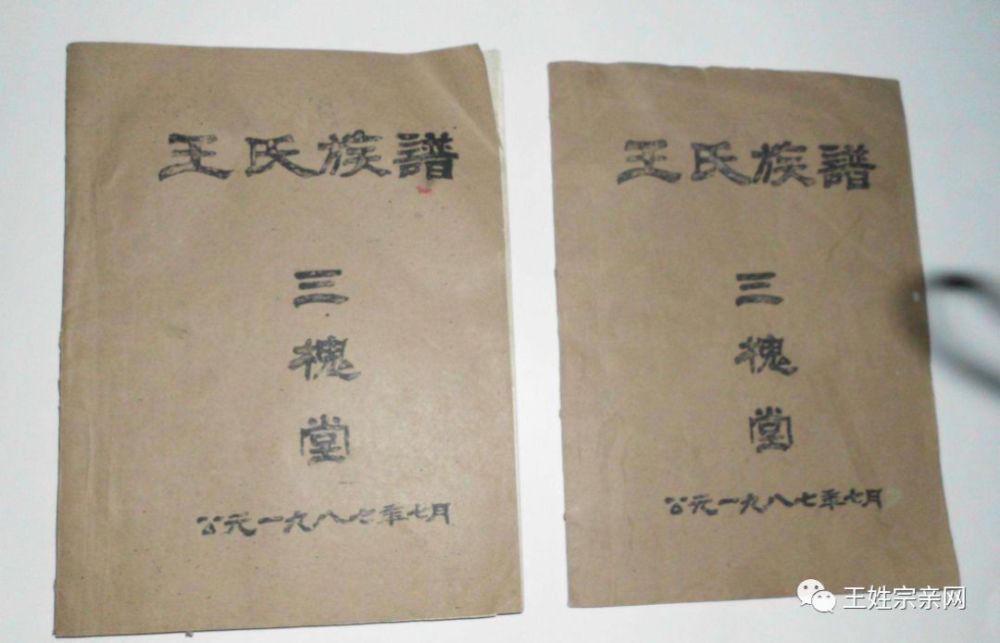 王氏族譜
三
槐
堂
公元一九八七年七月
王氏族譜
三
槐
堂
公元一九八七年七月
王姓宗亲网